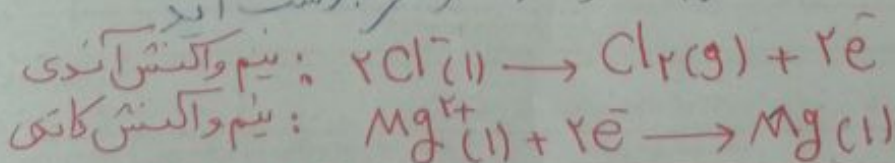 نیم واکنش آندی : ۲Cl⁻(l) ⟶ Cl۲(g) + ۲e⁻
نیم واکنش کاتدی : Mg²⁺(l) + ۲e⁻ ⟶ Mg(l)